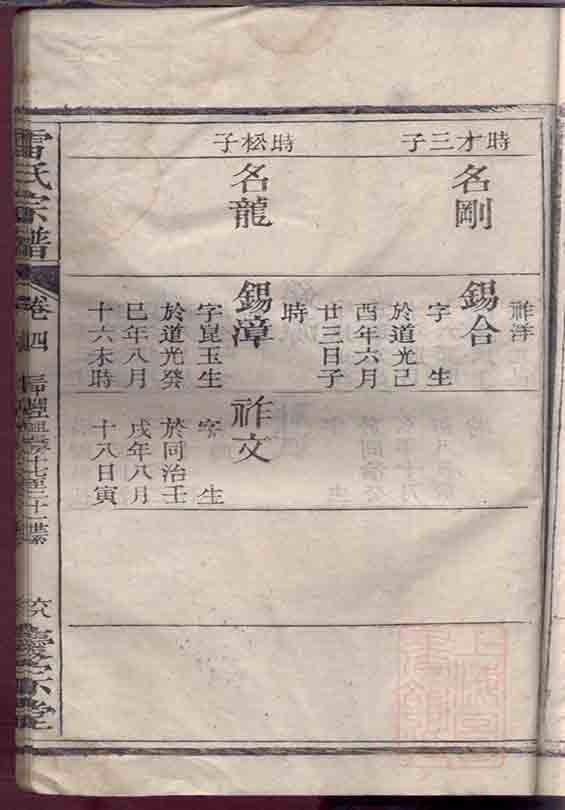 時才三子
名剛
時松子
名龍
祚洋
錫合
字　生
於道光己
酉年六月
廿三日子
時
錫漳
字崑玉生
於道光癸
巳年八月
十六未時
祚文
字　生
於同治壬
戌年八月
十八日寅
雷氏宗譜
卷四